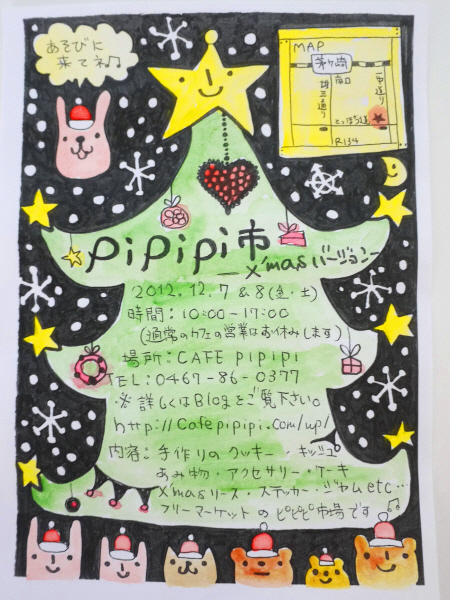 あそびに
来てネ♫
MAP
茅ヶ崎
南口
雄三通り
一中通り
てっぽう道
R134
pipipi市
X'mas バージョン
2012.12.7&8(金・土)
時間:10:00-17:00
(通常のカフェの営業はお休みします)
場所:CAFE pipipi
TEL:0467-86-0377
※詳しくはBlogをご覧下さい。
http://cafepipipi.com/wp/
内容:手作りのクッキー・キッシュ
あみ物・アクセサリー・ケーキ
X'masリース・ステッカー・ジャムetc…
フリーマーケットのピピピ市場です